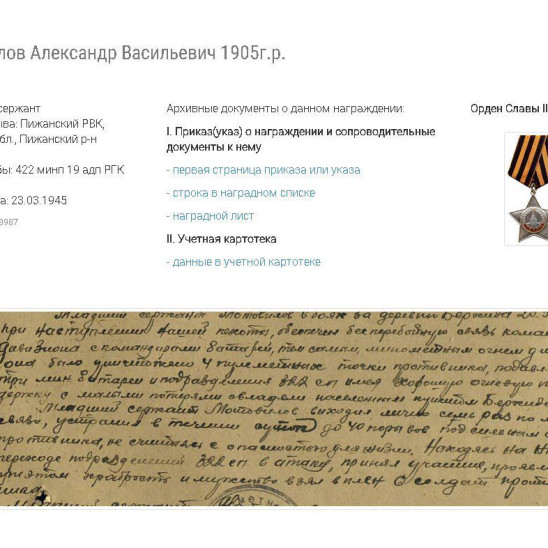 лов Александр Васильевич 1905г.р.
сержант
ва: Пижанский РВК,
бл., Пижанский р-н
бы: 422 минп 19 адп РГК
а: 23.03.1945
8987
Архивные документы о данном награждении:
I. Приказ(указ) о награждении и сопроводительные
документы к нему
- первая страница приказа или указа
- строка в наградном списке
- наградной лист
II. Учетная картотека
- данные в учетной картотеке
Орден Славы II
Младший сержант Мотовилов в боях за деревни
при наступлении нашей пехоты, обеспечен бесперебойную связь кома
дивизиона с командирами батарей, тем самым, минометным огнем д
она было уничтожено 4 пулеметных точки противника, подавл
три мин. батареи и подразделения 322 сп имея хорошую огневую п
держку с малыми потерями овладели населенным пунктом
Младший сержант Мотовилов выходил лично семь раз по
связи, устранил в течении суток до 40 порывов под сильным о
противника, не считаясь с опасностью для жизни. Находясь на
переходе подразделений 322 сп в атаку, принял участие, проявл
приэтом храбрость и мужество взял в плен 6 солдат проти
ника.
Младший сержант